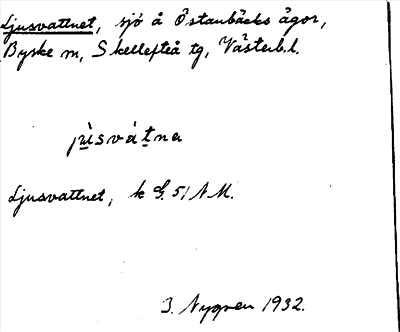 Ljusvattnet, sjö å Östanbäcks ägor,
Byske sn, Skellefteå tg, Västerb.l.
jùsvátna
Ljusvattnet, k G. 51 NM.
J. Nygren 1932.